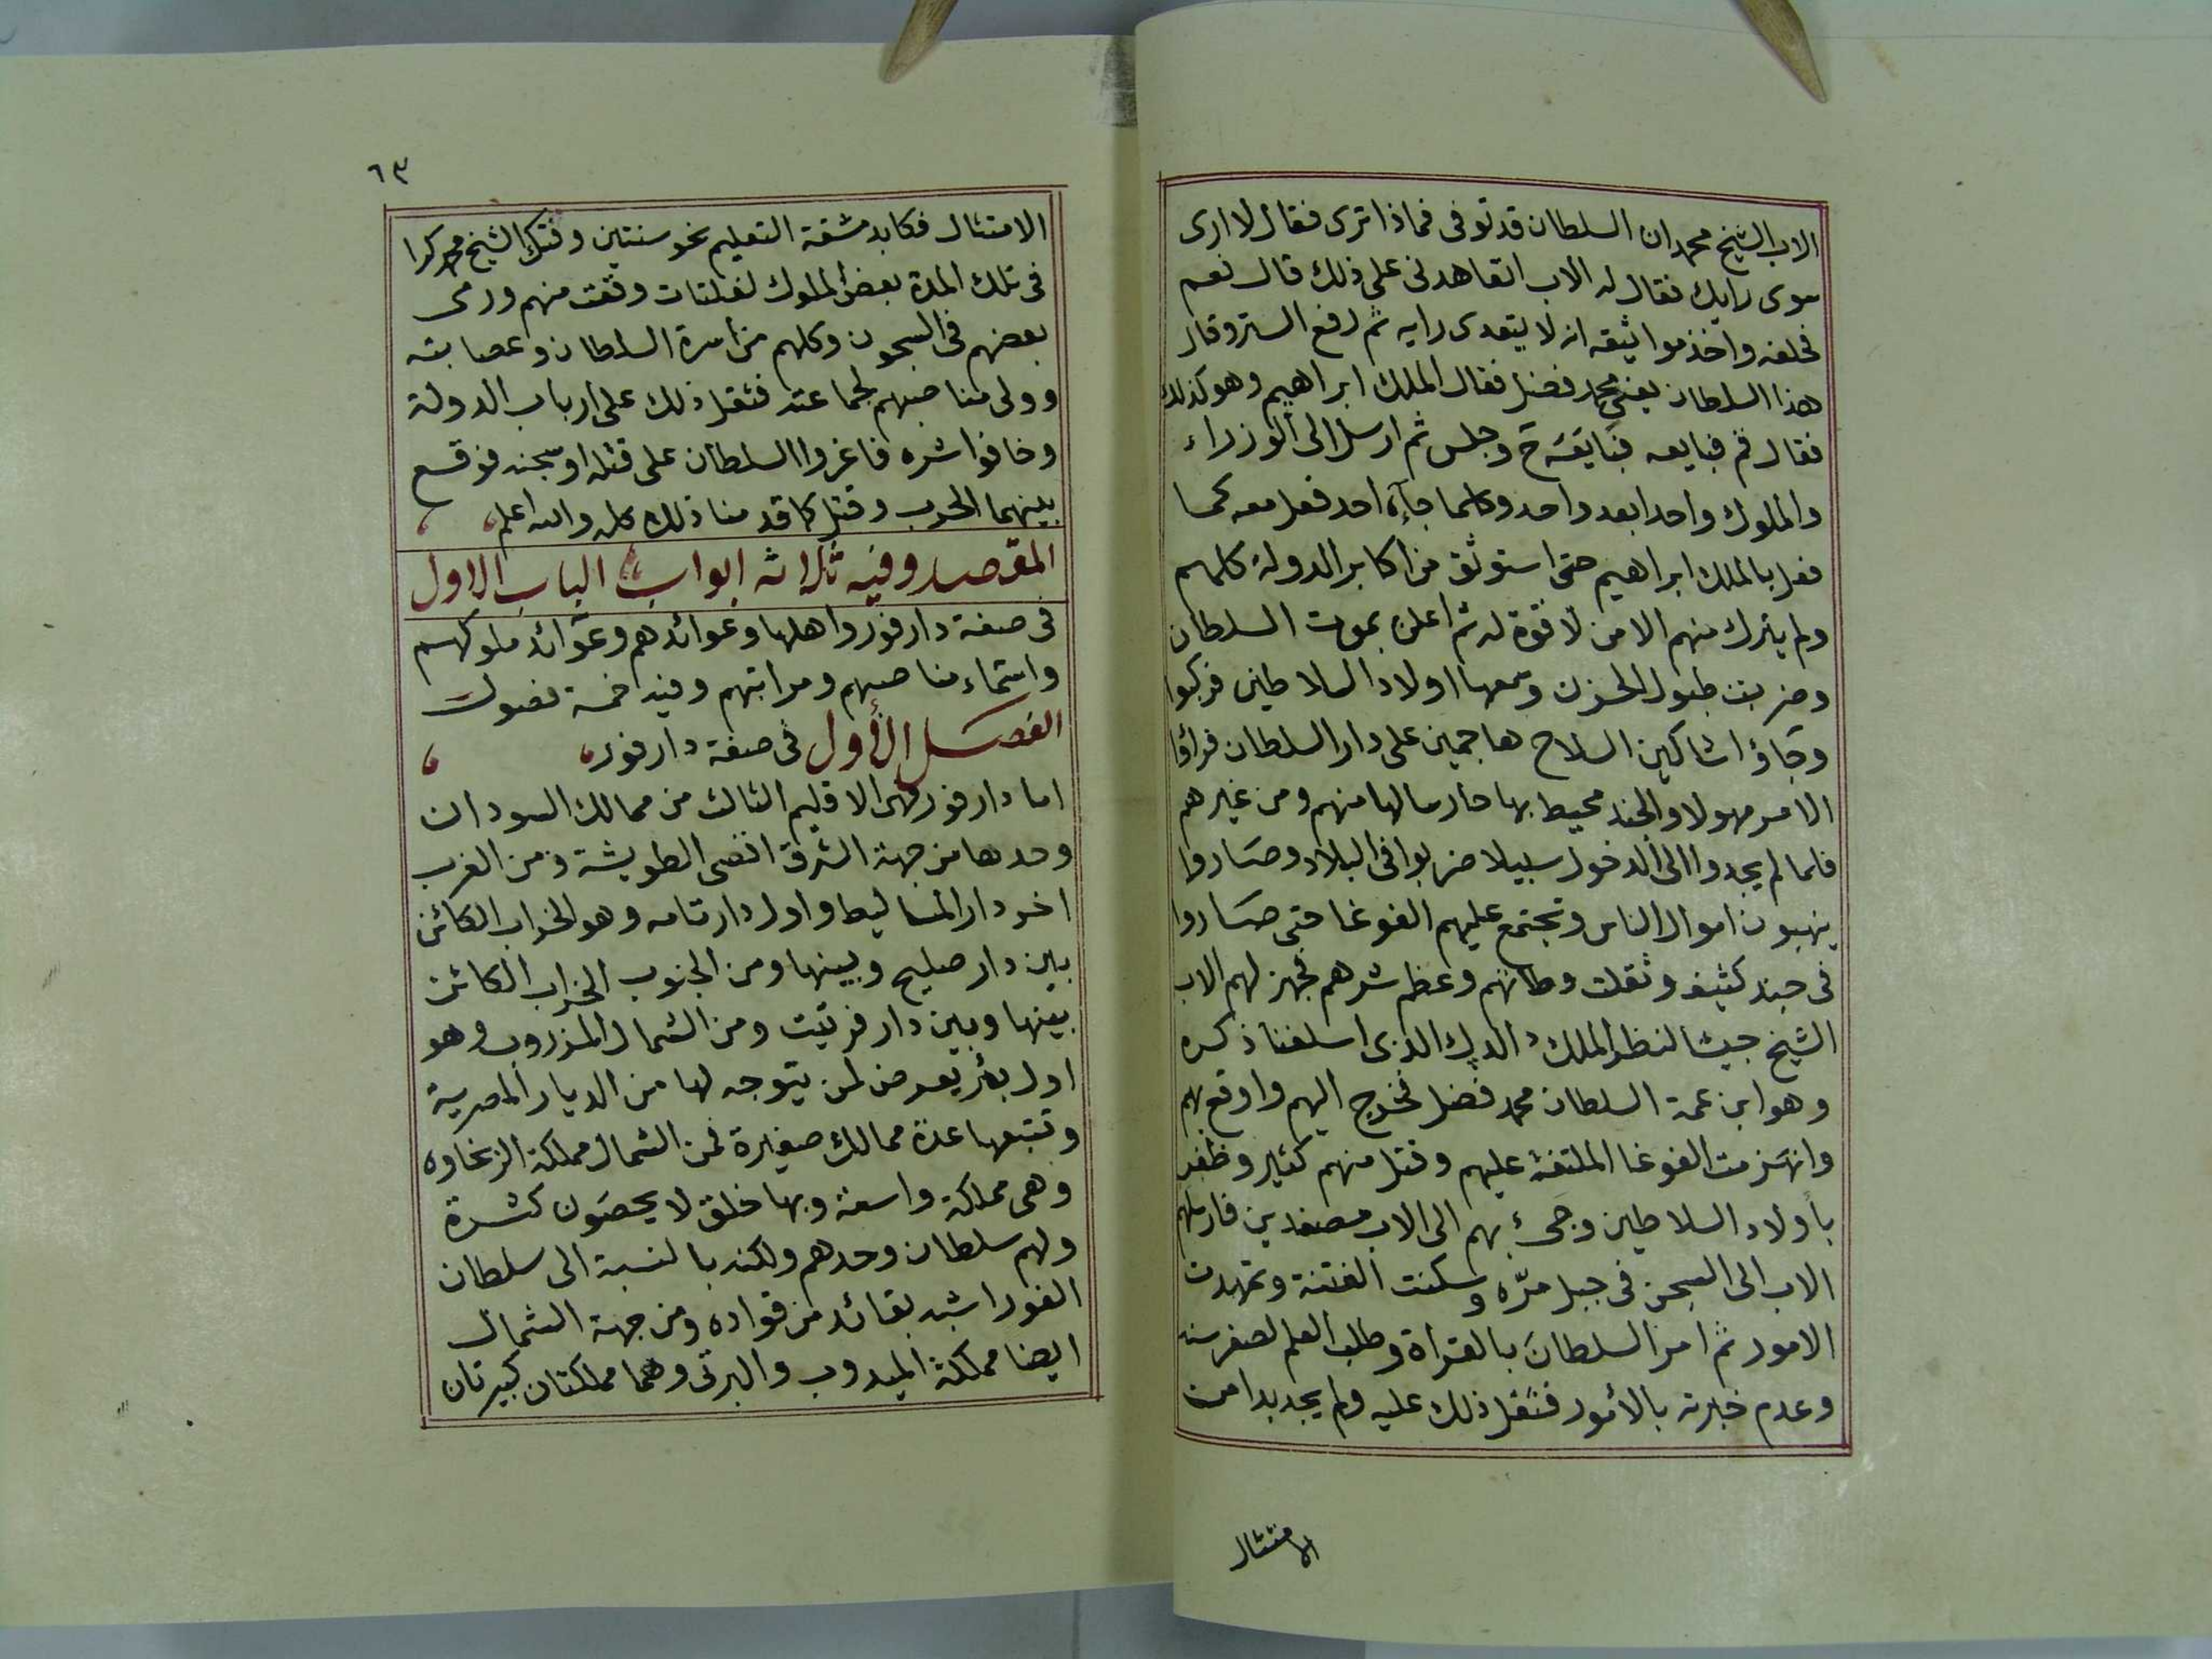 الاب الشيخ محمد ان السلطان قد توفى فماذا ترى فقال لا ارى
سوى رايك فقال له الاب اتعاهدنى على ذلك قال نعم
فحلفه واخذ مواثيقه انه لا يتعدى رايه ثم رفع الستر وقال
هذا السلطان يعنى محمد فضل فقال الملك ابراهيم وهو كذلك
فقال قم فبايعه فبايعه وجلس ثم ارسل الى الوزراء
والملوك واحدا بعد واحد وكلما جآءه احد فعل معه كما
فعل بالملك ابراهيم حتى استوثق من اكابر الدولة كلهم
ولم يترك منهم الا من لا قوة له ثم اعلن بموت السلطان
وضربت طبول الحزن وسمعها اولاد السلاطين فركبوا
وجاؤا شاكين السلاح هاجمين على دار السلطان فرأوا
الامر مهولا والجند محيط بها حارسا لها منهم ومن غيرهم
فلما لم يجدوا الى الدخول سبيلا ضربوا فى البلاد وصاروا
ينهبون اموال الناس وتجتمع عليهم الغوغا حتى صاروا
فى جند كثيف وثقلت وطاتهم وعظم شرهم فجهز لهم الاب
الشيخ جيشا لنظر الملك الدى الذى اسلفنا ذكره
وهو ابن عمة السلطان محمد فضل فخرج اليهم واوقع بهم
وانهزمت الغوغا الملتفة عليهم وقتل منهم كثير وظفر
بأولاد السلاطين وجئ بهم الى الاب مصفدين فارسلهم
الاب الى السجن فى جبل مرّه وسكنت الفتنة وتمهدت
الامور ثم امر السلطان بالقراة وطلب العلم لصغر سنه
وعدم خبرته بالأمور فثقل ذلك عليه ولم يجد بدا من
الامتثال
٦٣
الامتثال فكابد مشقة التعليم نحو سنتين وفتك الشيخ محمد كرا
فى تلك المدة بعض الملوك لفلتات وقعت منهم ورمى
بعضهم فى السجون وكلهم من اسرة السلطان وعصابته
وولى مناصبهم لجماعته فثقل ذلك على ارباب الدولة
وخافوا شره فاغروا السلطان على قتله او سجنه فوقع
بينهما الحرب وقتل كما قدمنا ذلك كله والله اعلم
المقصد وفيه ثلاثه ابواب الباب الاول
فى صفة دارفور واهلها وعوائدهم وعوائد ملوكهم
واسماء مناصبهم ومراتبهم وفيه خمسة فصول
الفصل الأول فى صفة دارفور
اما دارفور فهى الاقليم الثالث من ممالك السودان
وحدها من جهة الشرق اقصى الطويشة ومن الغرب
اخر دار المساليط واول دار تامه وهو الخراب الكائن
بين دار صليح وبينها ومن الجنوب الخراب الكائن
بينها وبين دار فرتيت ومن الشمال المزروب وهو
اول بئر يعرض لمن يتوجه لها من الديار المصرية
وتتبعها عدة ممالك صغيرة فمن الشمال مملكة الزغاوه
وهى مملكة واسعة وبها خلق لا يحصون كثرة
ولهم سلطان وحدهم ولكنه بالنسبة الى سلطان
الفور اشبه بقائد من قواده ومن جهة الشمال
ايضا مملكة الميدوب والبرتى وهما مملكتان كبيرتان